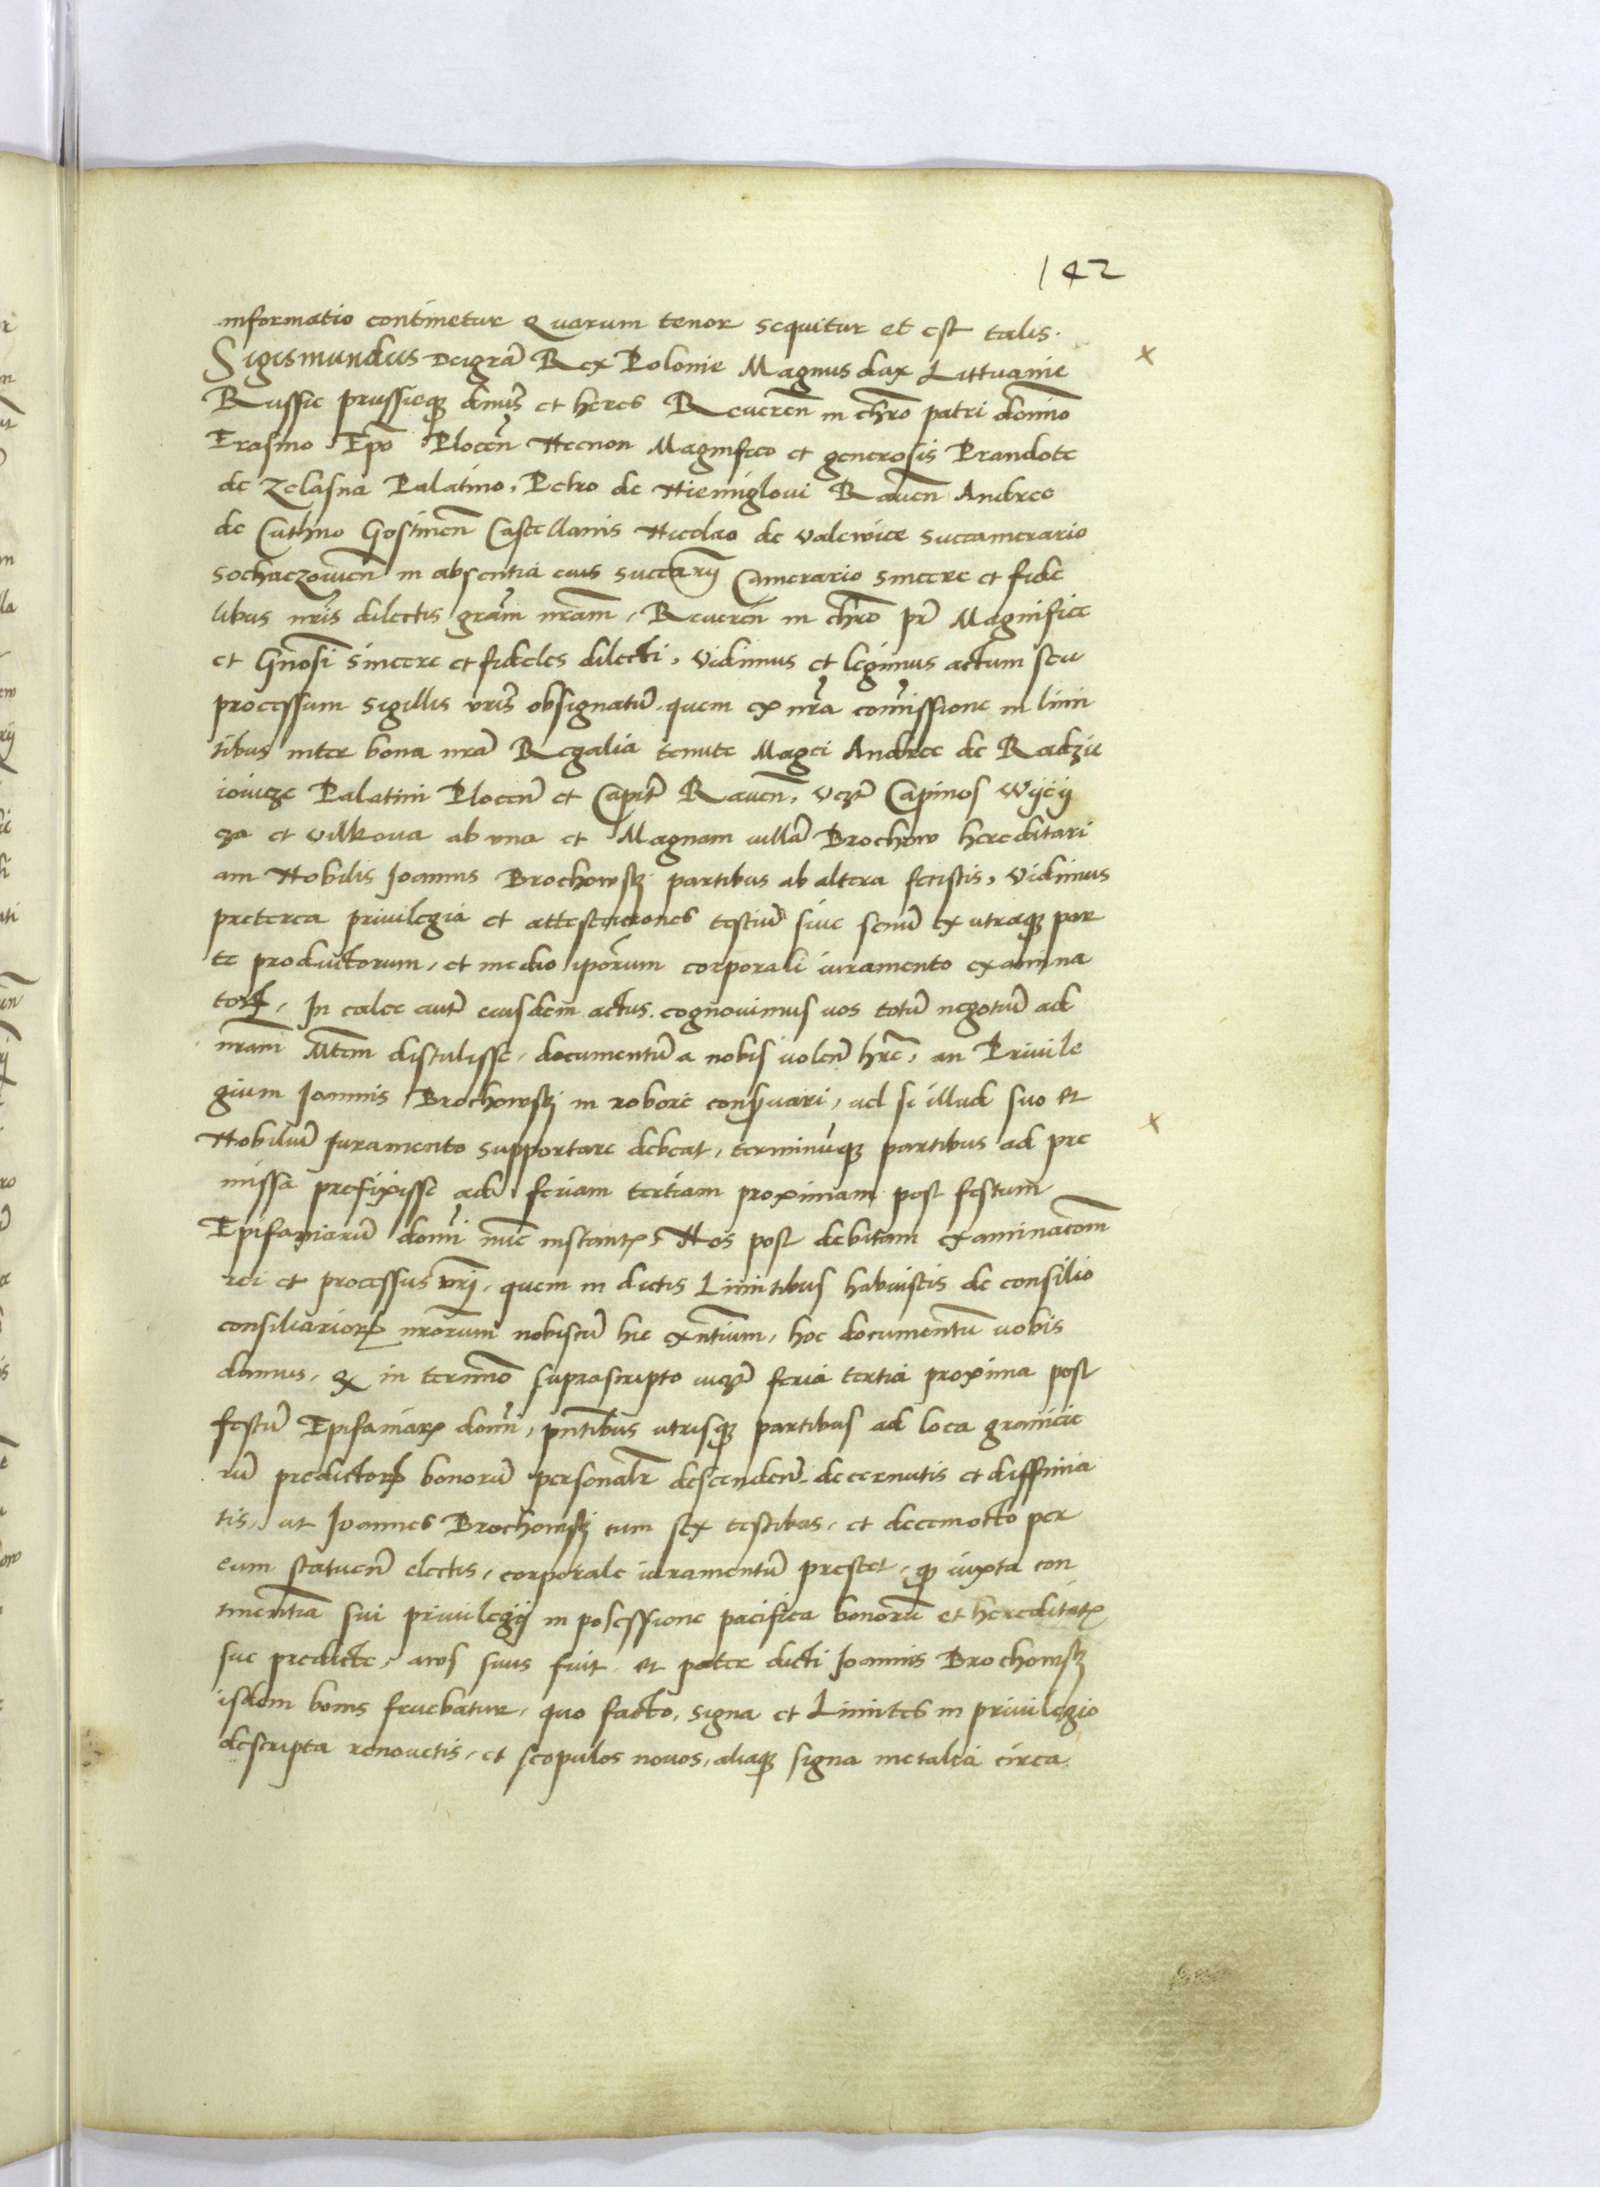 142
informatio continetur Quarum tenor sequitur et est talis.
Sigismundus Dei grã Rex Polonie Magnus dux Littuanie
Russie prussieq; dnus et heres Reueren in chro patri domino
Erasmo Epo Plocen Necnon Magnifico et generosis Prandote
de Zelasna Palatino, Petro de Niemiglovi Raven Andree
de Cuthno Gostinen Castellanis Nicolao de valewice succamerario
sochaczowien in absentia eius succarij Camerario sincere et fide
libus nris dilectis gram nram, Reueren in chro pr Magnifice
et Gnosi sincere et fideles dilecti, vidimus et legimus actum seu
processum sigillis vris obsignatu quem ex nra comissione in limi
tibus inter bona nra Regalia tenute Magci Andree de Radzie
ioiucze Palatini Plocen et Capit Raven, vcz Capinos Wijcij
cza et vilkova ab vna et Magnam villa Brochow hereditari
am Nobilis Joannis Brochowsky partibus ab altera fecistis, vidimus
preterea privilegia et attestaciones testiu siue senu ex utraq; par
te productorum, et medio iporum corporali iuramento examina
tor, In calce aut eiusdem actus cognouimus uos totu negotiu ad
nram Mtem distulisse, documentu a nobis uolen hre, an Privile
gium Joannis Brochowsky in robore conseruari, uel si illud suo et
Nobiliu Juramento supportare debeat, terminuq; partibus ad pre
missa prefixisse ad feriam tertiam proximam post festum
Epifaniaru domi nunc instant, Nos post debitam examinacom
rei et processus vri, quem in dictis Limitibus habuistis de consilio
consiliarior nrorum nobiscu hic exntium, hoc documentum uobis
damus, q in termino suprascripto vicz feria tertia proxima post
festu Epifaniar domi, pntibus utrisq; partibus ad loca granicie
ru predictor bonoru personalr descenden decernatis et diffinia
tis, ut Joannes Brochowsky cum sex testibus, et decemocto per
eum statuen electis, corporale iuramentu prestet, q iuxta con
tinentia sui privilegij in possessione pacifica bonoru et hereditat
sue predicte, avus suus fuit et pater dicti Joannis Brochowsky
isdem bonis fruebatur, quo facto, signa et Limites in privilegio
descripta renouetis, et scopulos nouos, aliaq; signa metalia circa